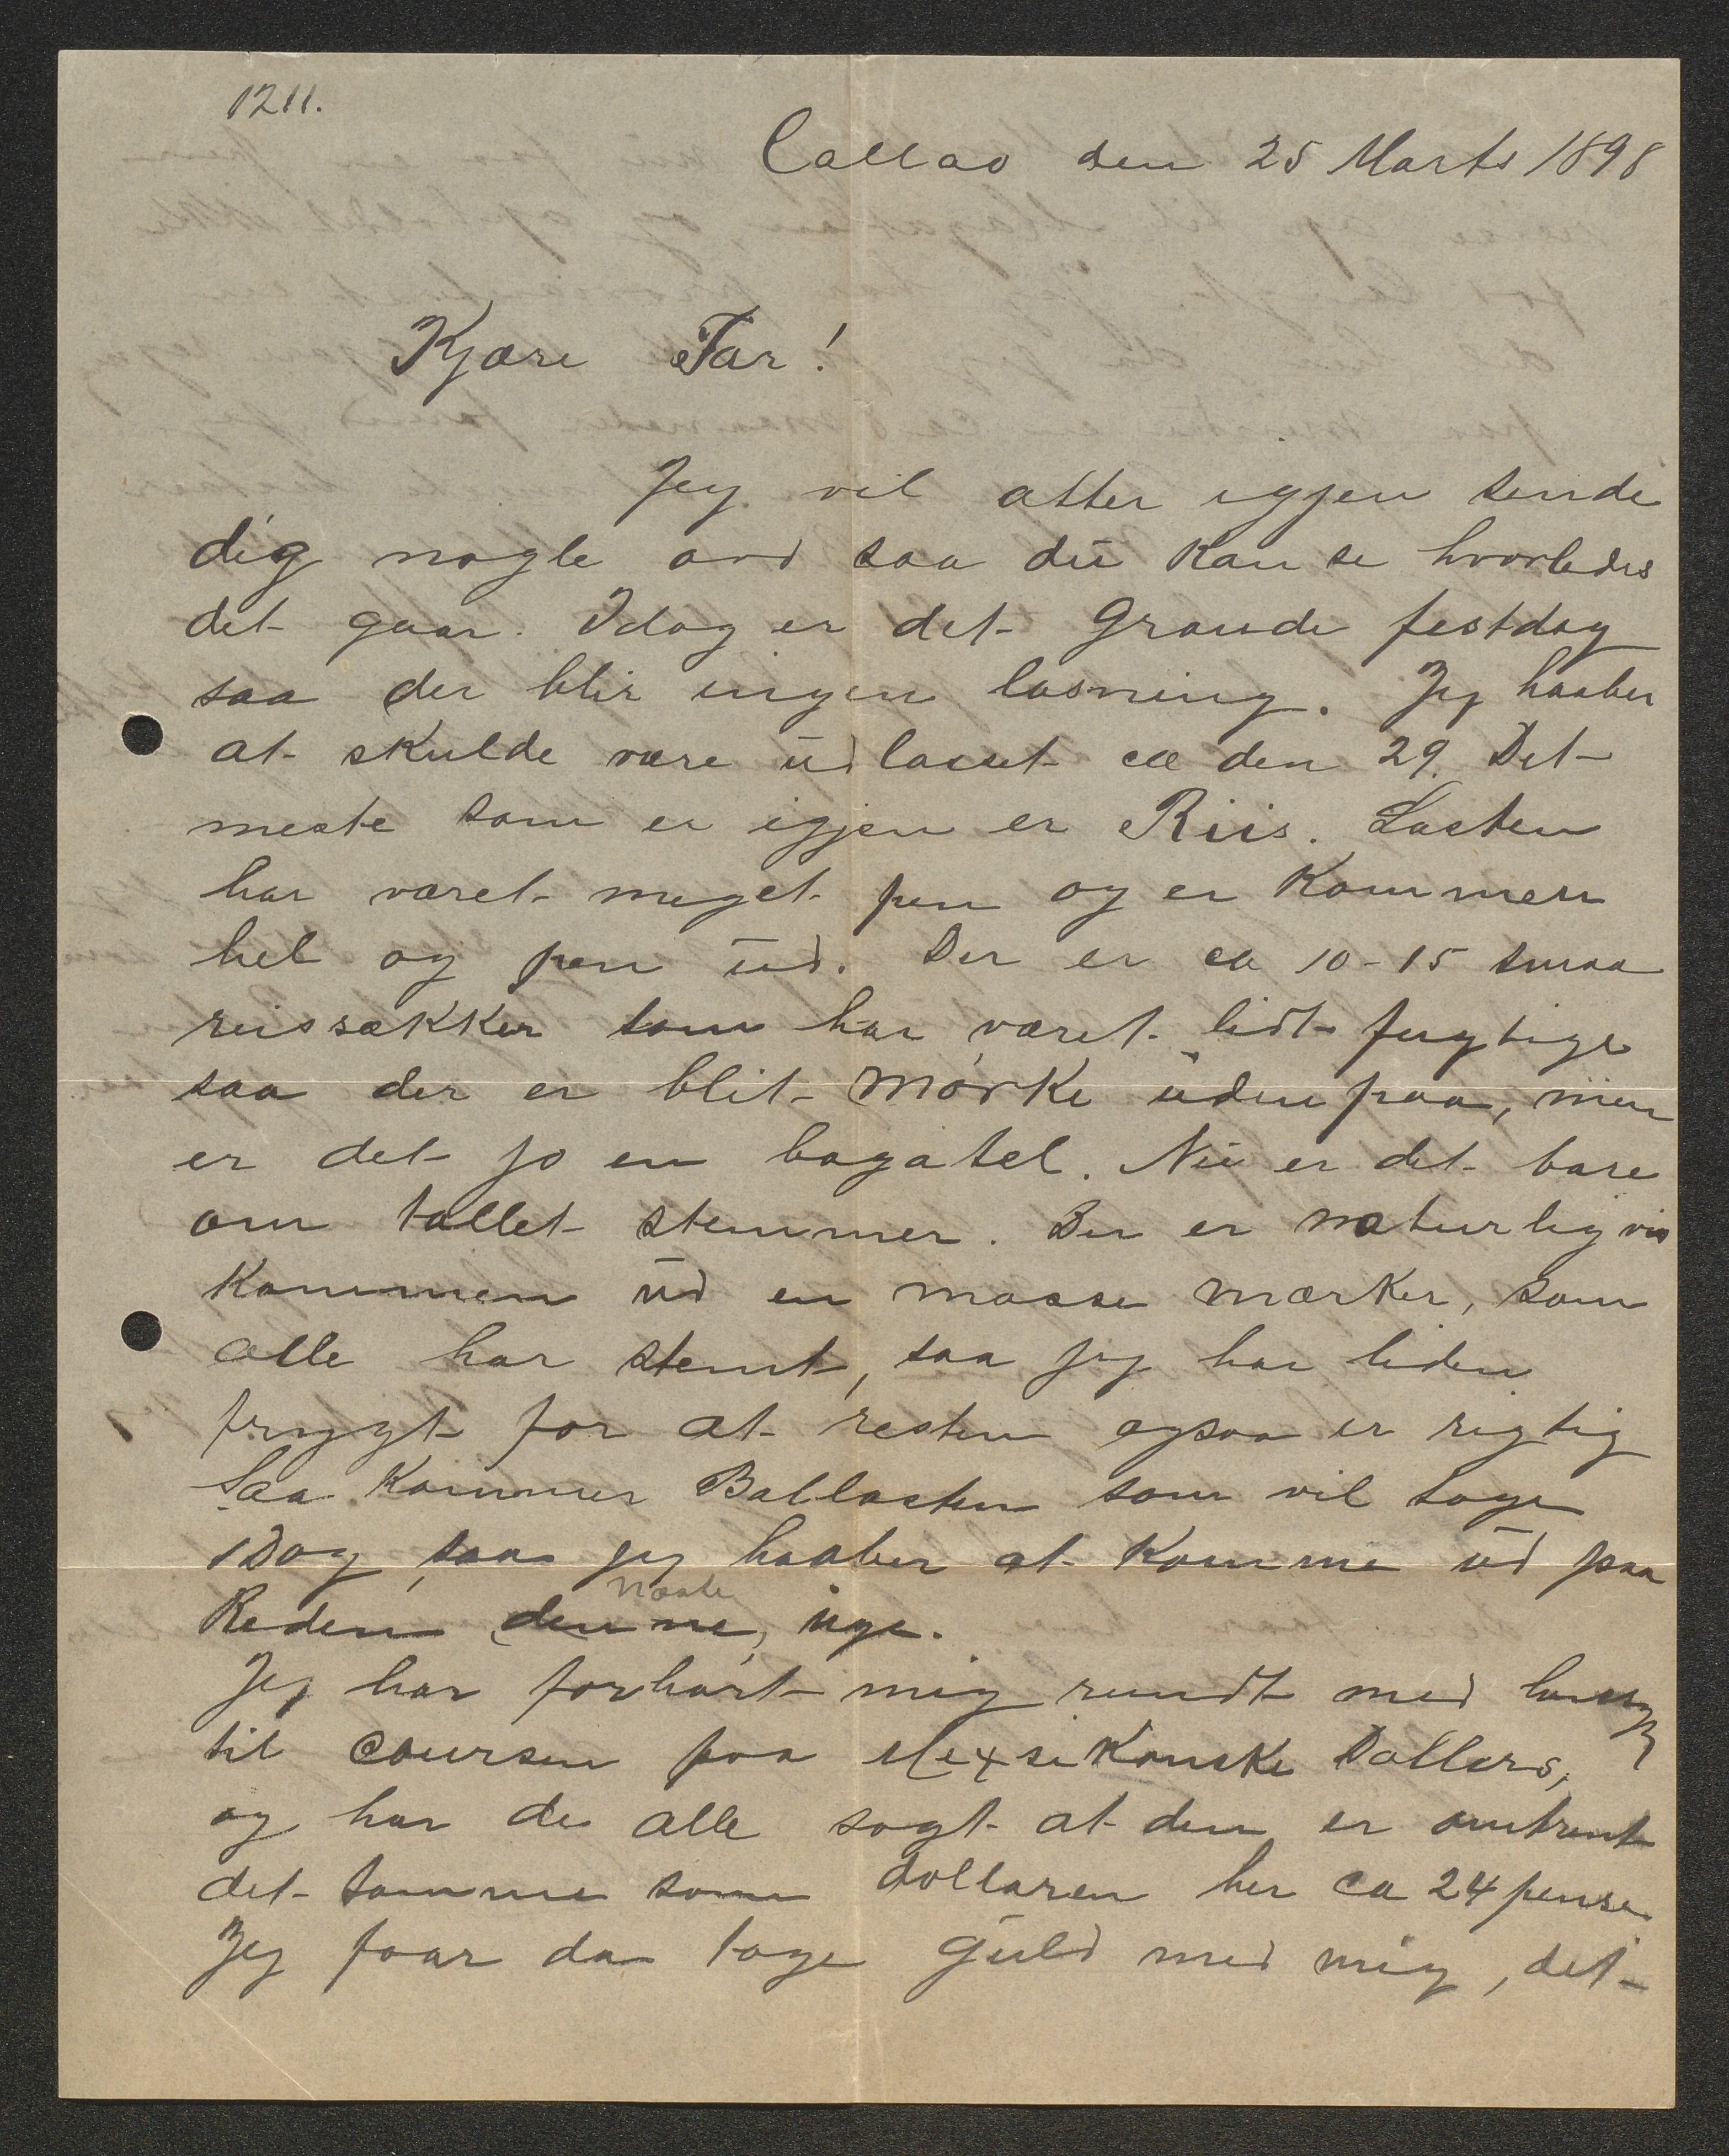 1211.
Callao den 25 Marts 1898
Kjære Far!
Jeg vil atter igjen sende
dig nogle ord saa du kan se hvorledes
det gaar. Idag er det Grande festdag
saa der blir ingen losning. Jeg haaber
at skulde være udlosset ca den 29. Det
meste som er igjen er Riis. Lasten
har været meget pen og er kommen
hel og pen ud. Der er ca 10-15 smaa
riissækker som har været lidt fugtige
saa der er blit mørke uden paa, men
er det jo en bagatel. Nu er det bare
om tallet stemmer. Der er naturligvis
kommen ud en masse mærker, som
alle har stemt, saa jeg har liden
frygt for at resten ogsaa er rigtig
Saa kommer Ballasten som vil tage
1 Dag, saa jeg haaber at komme ud paa
næste
Reden denne, uge.
Jeg har forhørt mig rundt med hensyn
til coursen paa Mexsikanske Dollers,
og har de alle sagt at den er omtrent
det samme som dollaren her ca 24 pense.
Jeg faar da tage Guld med mig, det